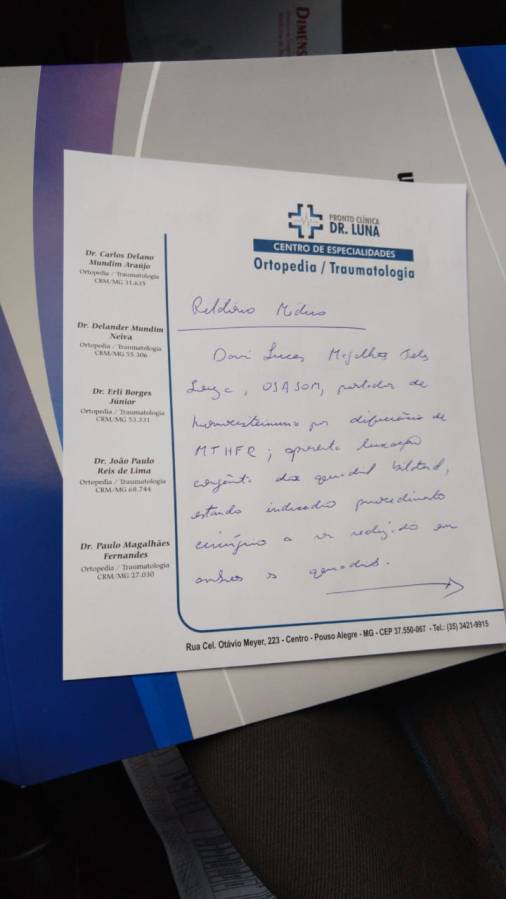 DIMENS
PRONTO CLÍNICA
DR. LUNA
CENTRO DE ESPECIALIDADES
Ortopedia / Traumatologia
Dr. Carlos Delano
Mundim Araújo
Ortopedia / Traumatologia
CRM/MG 31.635
Dr. Delander Mundim
Neiva
Ortopedia / Traumatologia
CRM/MG 55.306
Dr. Erli Borges
Júnior
Ortopedia / Traumatologia
CRM/MG 53.331
Dr. João Paulo
Reis de Lima
Ortopedia / Traumatologia
CRM/MG 60.744
Dr. Paulo Magalhães
Fernandes
Ortopedia / Traumatologia
CRM/MG 27.030
Relatório Médico
Davi Lucas Magalhães
, portador de
por deficiência de
MTHFR; apresenta luxação
congênita do quadril bilateral,
estando indicado procedimento
cirúrgico a ser realizado em
ambos os quadris.
Rua Cel. Otávio Meyer, 223 - Centro - Pouso Alegre - MG - CEP 37.550-067 - Tel.: (35) 3421-9915